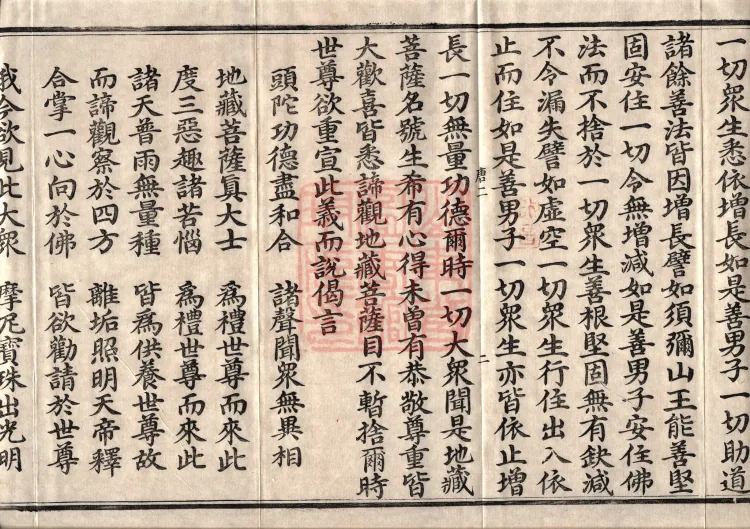 一切眾生悉依增長如是善男子一切助道
諸餘善法皆因增長譬如須彌山王能善堅
固安住一切令無增減如是善男子安住佛
法而不捨於一切眾生善根堅固無有缺減
不令漏失譬如虛空一切眾生行住出入依
止而住如是善男子一切眾生亦皆依止增
唐二
二
長一切無量功德爾時一切大眾聞是地藏
菩薩名號生希有心得未曾有恭敬尊重皆
大歡喜皆悉諦觀地藏菩薩目不暫捨爾時
世尊欲重宣此義而說偈言
頭陀功德盡和合　諸聲聞眾無異相
地藏菩薩真大士　為禮世尊而來此
度三惡趣諸苦惱　為禮世尊而來此
諸天普雨無量種　皆為供養世尊故
而諦觀察於四方　離垢照明天帝釋
合掌一心向於佛　皆欲勸請於世尊
我今欲見此大眾　摩尼寶珠出光明